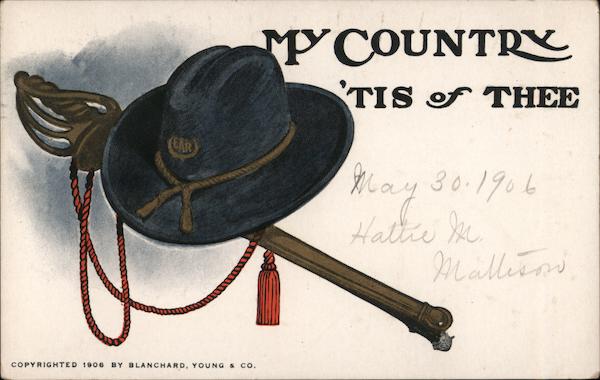 MY COUNTRY
'TIS of THEE
GAR
May 30. 1906
Hattie M.
Mattison
COPYRIGHTED 1906 BY BLANCHARD, YOUNG & CO.